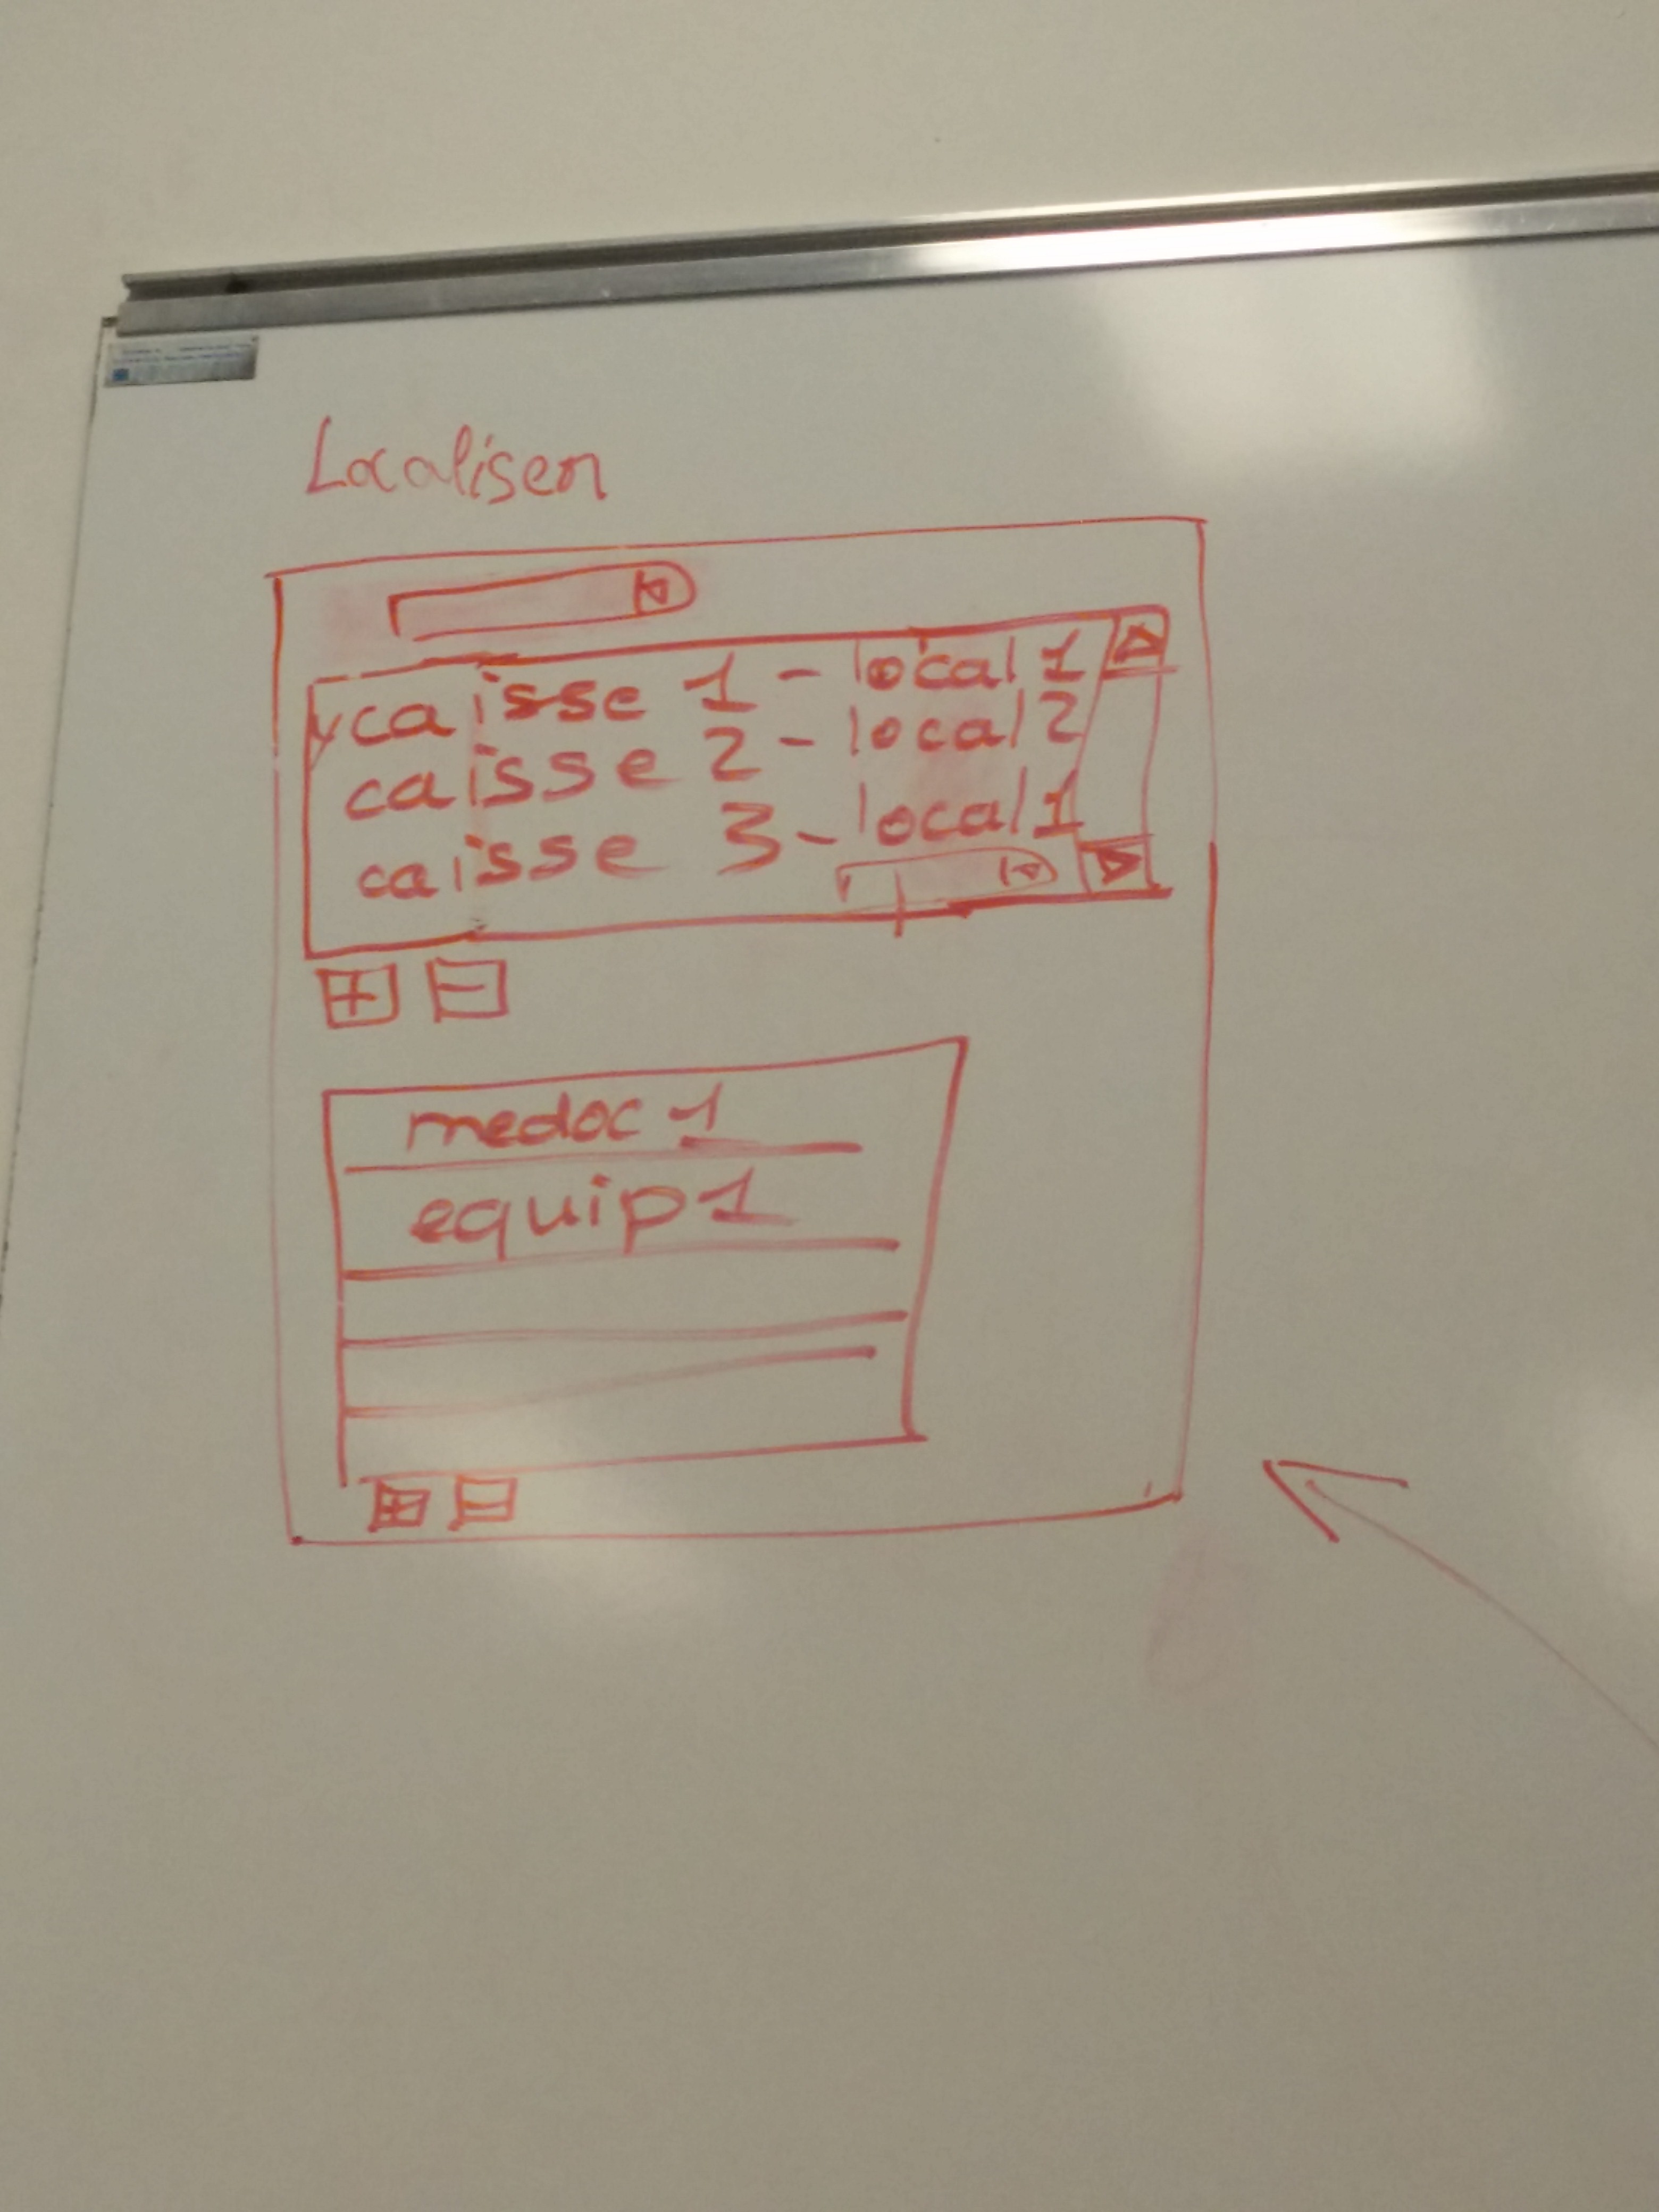 Localiser
caisse 1 - local 1
caisse 2 - local 2
caisse 3 - local 1
+ -
medoc 1
equip 1
+ -